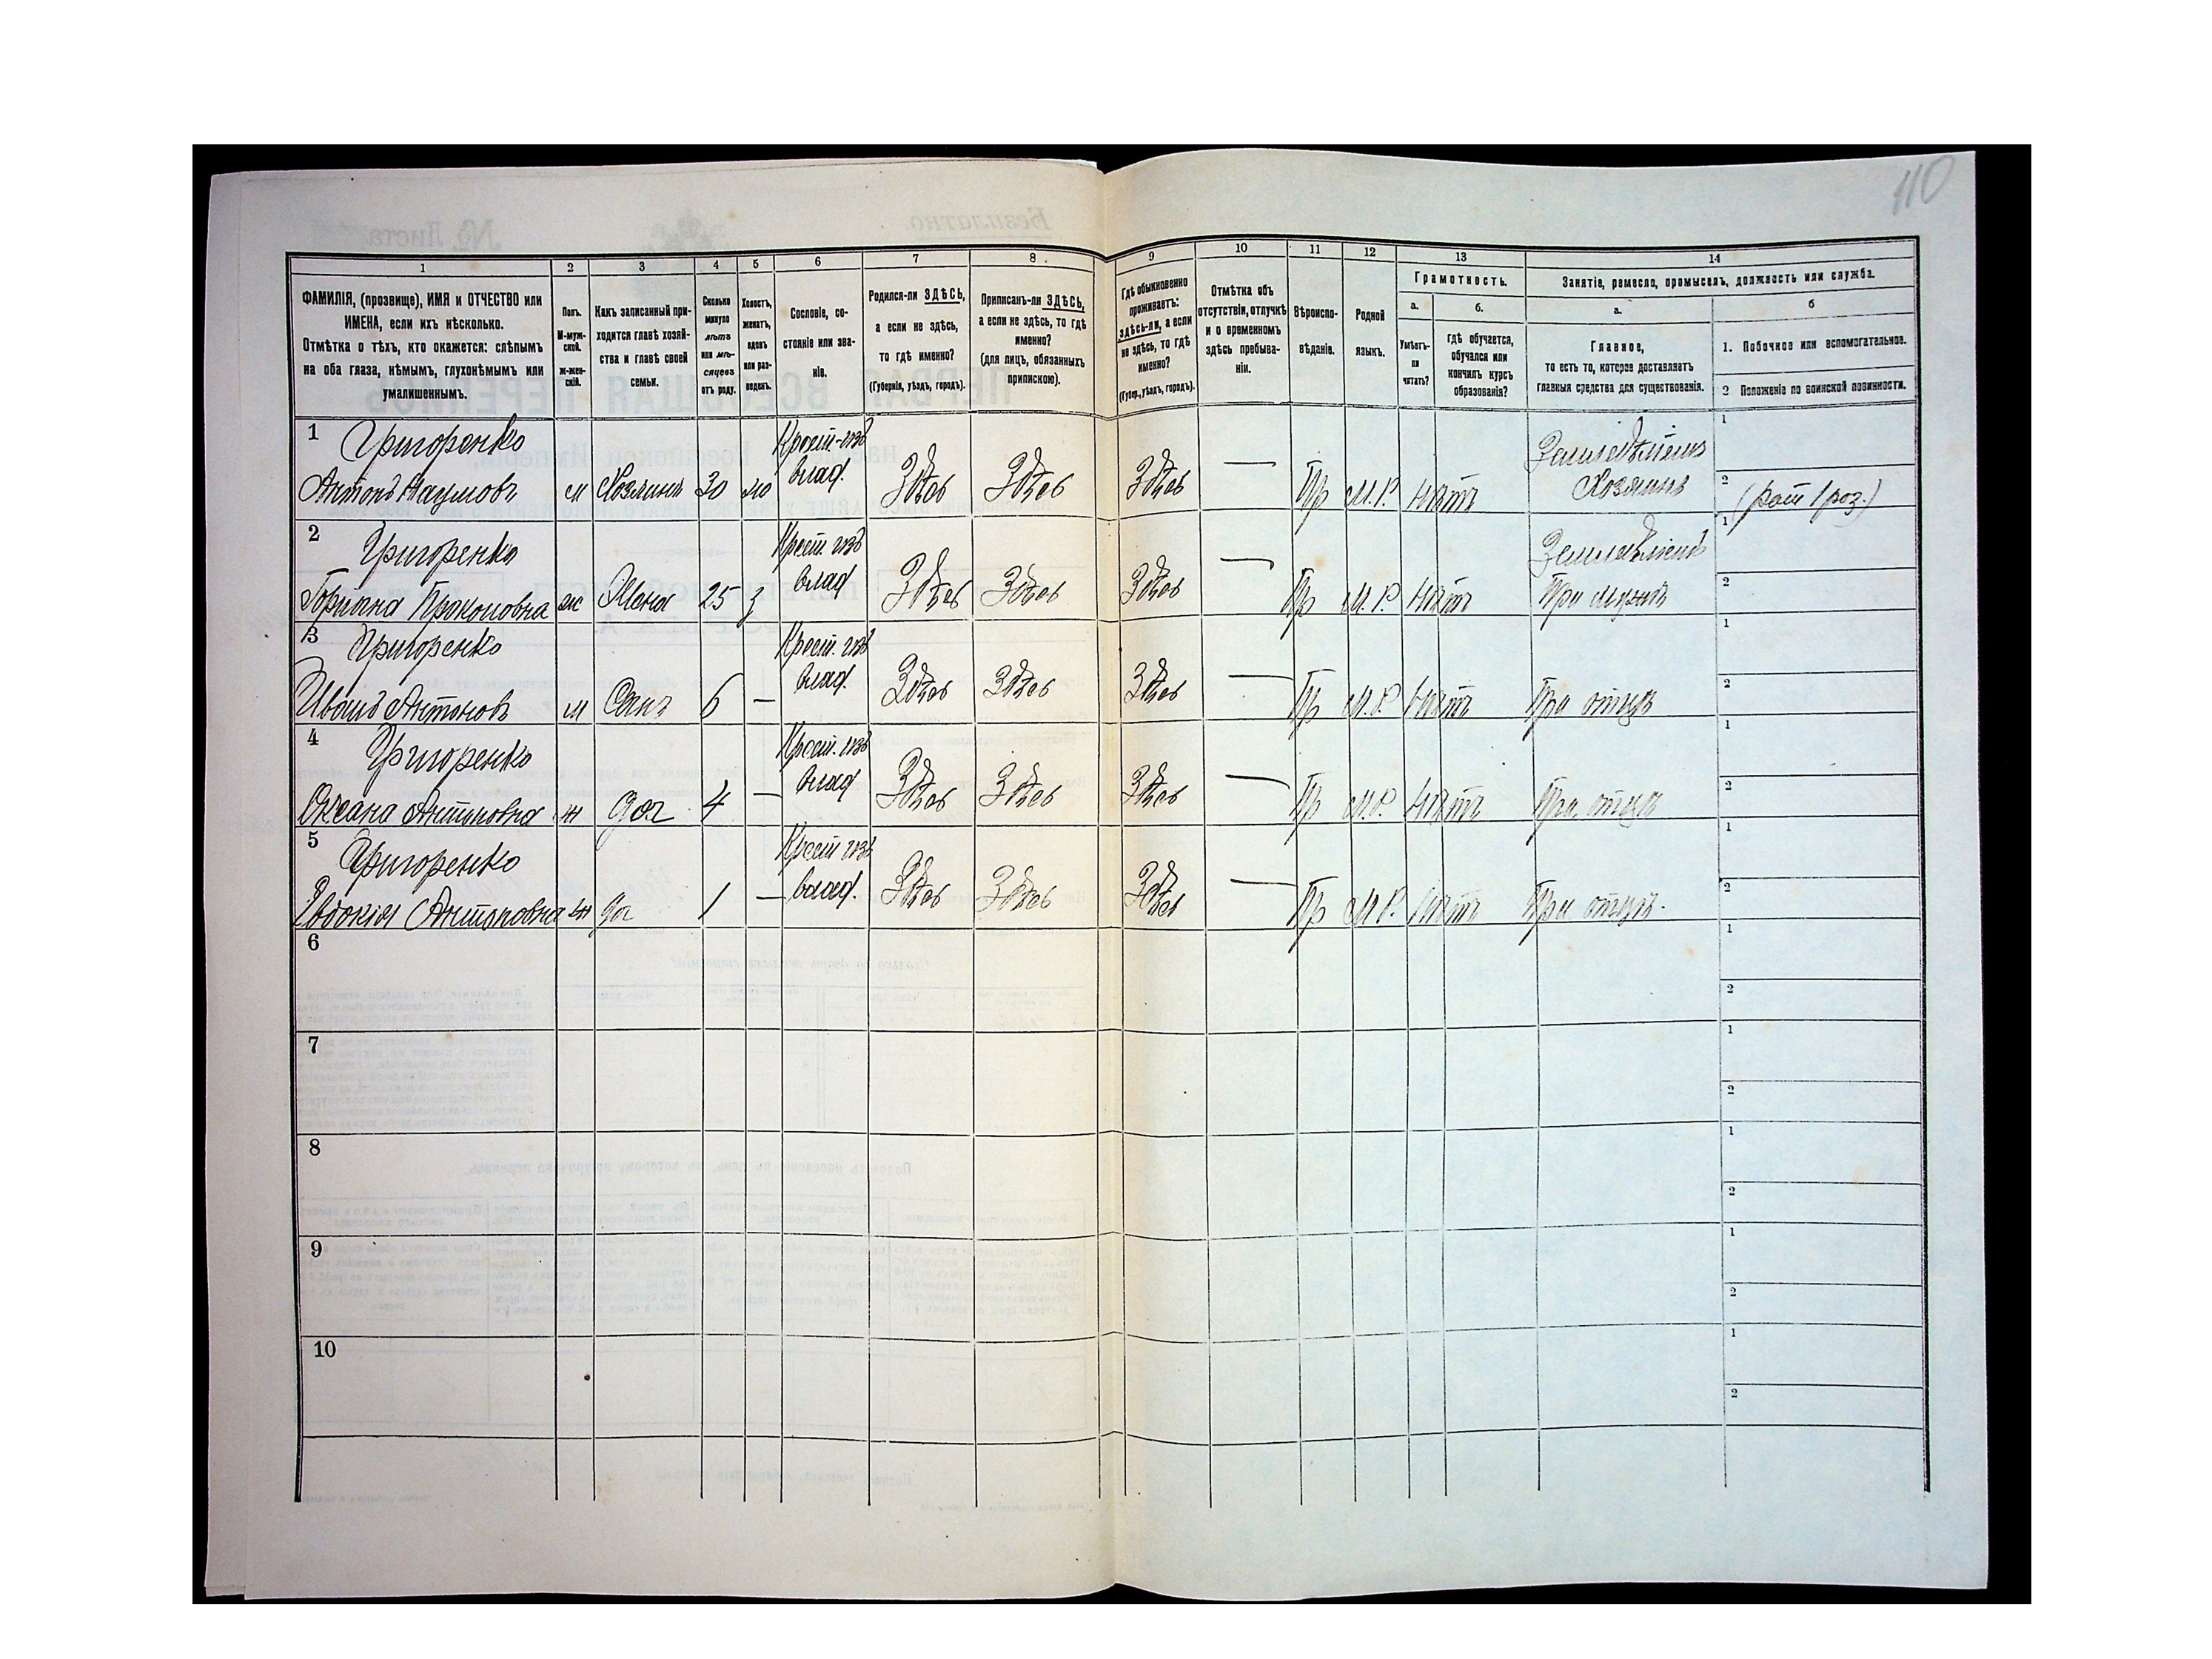 110
1 2 3 4 5 6 7 8 9 10 11 12 13 14
ФАМИЛІЯ, (прозвище), ИМЯ и ОТЧЕСТВО или
ИМЕНА, если ихъ нѣсколько.
Отмѣтка о тѣхъ, кто окажется: слѣпымъ
на оба глаза, нѣмымъ, глухонѣмымъ или
умалишеннымъ.
Полъ.
М-муж-
ской.
ж-жен-
скій.
Какъ записанный при-
ходится главѣ хозяй-
ства и главѣ своей
семьи.
Сколько
минуло
лѣтъ
или мѣ-
сяцевъ
отъ роду.
Холостъ,
женатъ,
вдовъ
или раз-
веденъ.
Сословіе, со-
стояніе или зва-
ніе.
Родился-ли ЗДѢСЬ,
а если не здѣсь,
то гдѣ именно?
(Губернія, уѣздъ, городъ).
Приписанъ-ли ЗДѢСЬ,
а если не здѣсь, то гдѣ
именно?
(для лицъ, обязанныхъ
припискою).
Гдѣ обыкновенно
проживаетъ:
здѣсь-ли, а если
не здѣсь, то гдѣ
именно?
(Губер., уѣздъ, городъ).
Отмѣтка объ
отсутствіи, отлучкѣ
и о временномъ
здѣсь пребыва-
ніи.
Вѣроиспо-
вѣданіе.
Родной
языкъ.
Грамотность.
а.
Умѣетъ-
ли
читать?
б.
Гдѣ обучается,
обучался или
кончилъ курсъ
образованія?
Занятіе, ремесло, промыселъ, должность или служба.
а.
Главное,
то есть то, которое доставляетъ
главныя средства для существованія.
б
1. Побочное или вспомогательное.
2 Положеніе по воинской повинности.
1 Григоренко Крест. Земледѣліемъ 1
Антонъ Наумовъ м Хозяинъ 30 влад. Здѣсь Здѣсь Здѣсь — Пр М.Р. нѣтъ Хозяинъ 2
2 Григоренко Крест. Земледѣліемъ 1
Прокоповна ж Жена 25 з влад. Здѣсь Здѣсь Здѣсь — Пр М.Р. нѣтъ При мужѣ 2
3 Григоренко Крест. 1
Иванъ Антоновъ м Сынъ 6 — влад. Здѣсь Здѣсь Здѣсь — Пр М.Р. нѣтъ При отцѣ 2
4 Григоренко Крест. 1
Оксана Антоновна ж доч 4 — влад Здѣсь Здѣсь Здѣсь — Пр М.Р. нѣтъ При отцѣ 2
5 Григоренко Крест 1
Евдокія Антоновна ж доч 1 — влад. Здѣсь Здѣсь Здѣсь — Пр М.Р. нѣтъ При отцѣ. 2
6 1
2
7 1
2
8 1
2
9 1
2
10 1
2